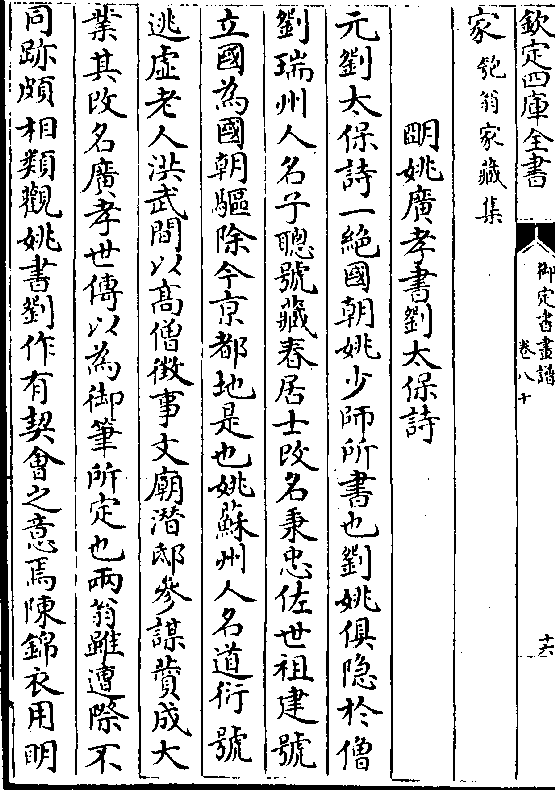 欽定四庫全書
御定書畫譜
卷八十
十六
家 匏翁家藏集
明姚廣孝書劉太保詩
元劉太保詩一絶國朝姚少師所書也劉姚俱隐於僧
劉瑞州人名子聰號藏春居士改名秉忠佐世祖建號
立國為國朝驅除今京都地是也姚蘇州人名道衍號
逃虛老人洪武間以髙僧徵事文廟潜邸參謀賛成大
業其改名廣孝世傳以為御筆所定也兩翁雖遭際不
同跡頗相類觀姚書劉作有契會之意焉陳錦衣用明